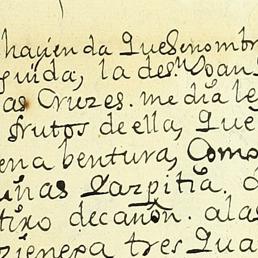 hacienda que se nombr
guida, la des.n Joan
as Cruzes. media le
frutos de ella, que
ena bentura, Como
unas
tixo decañon. a las
tres qua